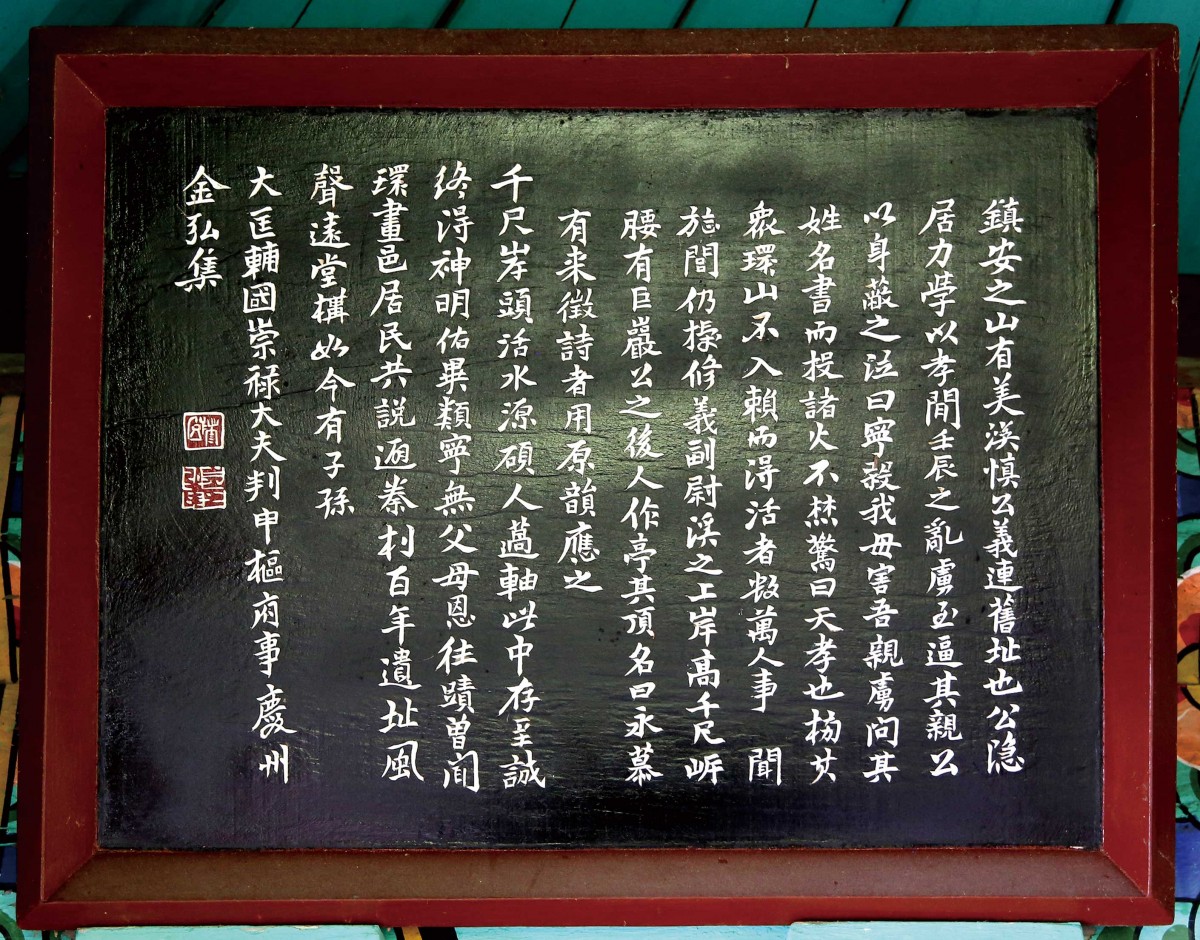 鎮安之山有美溪愼公義連舊址也公隐
居力學以孝聞壬辰之亂虜至逼其親公
以身蔽之泣曰寧殺我毋害吾親虜问其
姓名書而投諸火不焚驚曰天孝也揭其
衆環山不入賴而得活者数萬人事 聞
旌閭仍授修義副尉溪之上岸高千尺岍
腰有巨巖公之後人作亭其頂名曰永慕
有来徵詩者用原韻應之
千尺岸頭活水源碩人薖軸此中存至誠
终得神明佑異類寧無父母恩往蹟曽闻
環畫邑居民共説遍秦村百年遺址風
聲遠堂構如今有子孫
大匡輔國崇禄大夫判中樞府事慶州
金弘集